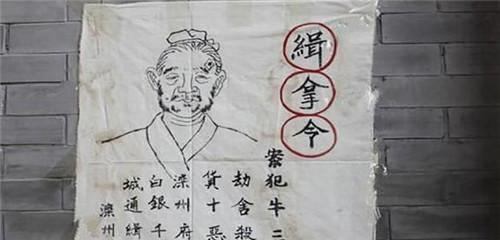 緝拿令
案犯牛二
劫舍殺
貨十惡
滦州府
白銀千
城通緝
滦州